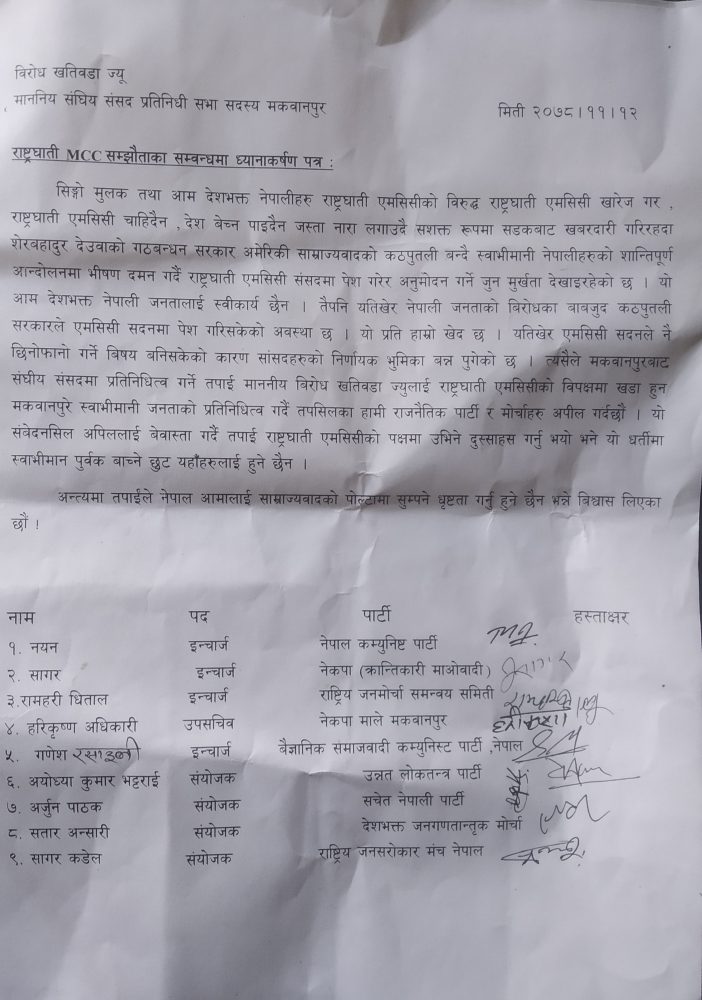 विरोध खतिवडा ज्यू
माननिय संघिय संसद प्रतिनिधी सभा सदस्य मकवानपुर
मिती २०७८।११।१२
राष्ट्रघाती MCC सम्झौताका सम्वन्धमा ध्यानाकर्षण पत्र :
सिङ्गो मुलक तथा आम देशभक्त नेपालीहरु राष्ट्रघाती एमसिसीको विरुद्ध राष्ट्रघाती एमसिसी खारेज गर ,
राष्ट्रघाती एमसिसी चाहिदैन , देश बेच्न पाइदैन जस्ता नारा लगाउदै सशक्त रूपमा सडकबाट खबरदारी गरिरहदा
शेरबहादुर देउवाको गठबन्धन सरकार अमेरिकी साम्राज्यवादको कठपुतली बन्दै स्वाभीमानी नेपालीहरुको शान्तिपूर्ण
आन्दोलनमा भीषण दमन गर्दै राष्ट्रघाती एमसिसी संसदमा पेश गरेर अनुमोदन गर्ने जुन मुर्खता देखाइरहेको छ । यो
आम देशभक्त नेपाली जनतालाई स्वीकार्य छैन । तैपनि यतिखेर नेपाली जनताको बिरोधका बाबजुद कठपुतली
सरकारले एमसिसी सदनमा पेश गरिसकेको अवस्था छ । यो प्रति हाम्रो खेद छ । यतिखेर एमसिसी सदनले नै
छिनोफानो गर्ने बिषय बनिसकेको कारण सांसदहरुको निर्णायक भुमिका बन्न पुगेको छ । त्यसैले मकवानपुरबाट
संघीय संसदमा प्रतिनिधित्व गर्ने तपाई माननीय बिरोध खतिवडा ज्युलाई राष्ट्रघाती एमसिसीको विपक्षमा खडा हुन
मकवानपुरे स्वाभीमानी जनताको प्रतिनिधित्व गर्दै तपसिलका हामी राजनैतिक पार्टी र मोर्चाहरु अपील गर्दछौं । यो
संवेदनसिल अपिललाई बेवास्ता गर्दै तपाई राष्ट्रघाती एमसिसीको पक्षमा उभिने दुस्साहस गर्नु भयो भने यो धर्तीमा
स्वाभीमान पुर्वक बाच्ने छुट यहाँहरुलाई हुने छैन ।
अन्त्यमा तपाईंले नेपाल आमालाई साम्राज्यवादको पोल्टामा सुम्पने धृष्टता गर्नु हुने छैन भन्ने बिश्वास लिएका
छौं !
नाम पद पार्टी हस्ताक्षर
१. नयन इन्चार्ज नेपाल कम्युनिष्ट पार्टी
२. सागर इन्चार्ज नेकपा (क्रान्तिकारी माओवादी)
३.रामहरी धिताल इन्चार्ज राष्ट्रिय जनमोर्चा समन्वय समिती
४. हरिकृष्ण अधिकारी उपसचिव नेकपा माले मकवानपुर
५. गणेश रसाइली इन्चार्ज बैज्ञानिक समाजवादी कम्युनिस्ट पार्टी ,नेपाल
६. अयोध्या कुमार भट्टराई संयोजक उन्नत लोकतन्त्र पार्टी
७. अर्जुन पाठक संयोजक सचेत नेपाली पार्टी
८. सतार अन्सारी संयोजक देशभक्त जनगणतान्तृक मोर्चा
९. सागर कडेल संयोजक राष्ट्रिय जनसरोकार मंच नेपाल